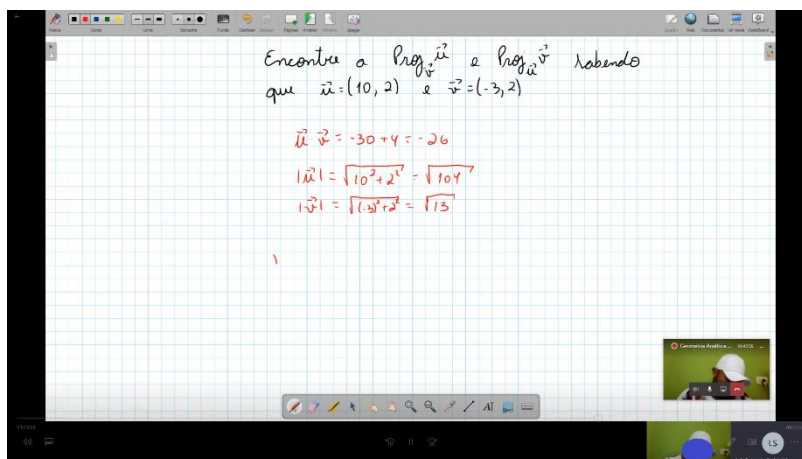 Encontre a Proj_v⃗ u⃗ e Proj_u⃗ v⃗ sabendo
que u⃗ = (10, 2) e v⃗ = (-3, 2)
u⃗ v⃗ = -30 + 4 = -26
|u⃗| = √(10² + 2²) = √104
|v⃗| = √((-3)² + 2²) = √13
Geometria Analítica
AI
LS